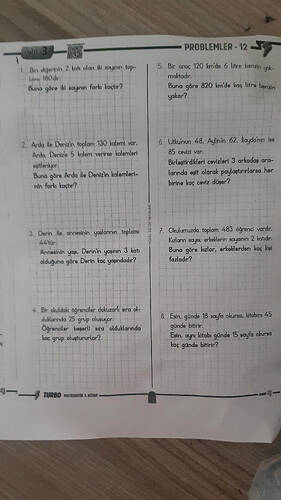 PROBLEMLER - 12
1. Biri diğerinin 2 katı olan iki sayının top-
lamı 180'dir.
Buna göre iki sayının farkı kaçtır?
2. Arda ile Deniz'in toplam 130 kalemi var.
Arda, Deniz'e 5 kalem verirse kalemleri
eşitleniyor.
Buna göre Arda ile Deniz'in kalemleri-
nin farkı kaçtır?
3. Derin ile annesinin yaşlarının toplamı
44'tür.
Annesinin yaşı, Derin'in yaşının 3 katı
olduğuna göre Derin kaç yaşındadır?
4. Bir okuldaki öğrenciler dokuzarlı sıra ol-
duklarında 25 grup oluşuyor.
Öğrenciler beşerli sıra olduklarında
kaç grup oluştururlar?
TURBO MATEMATİK 3. KİTAP
5. Bir araç 120 km'de 6 litre benzin yak-
maktadır.
Buna göre 820 km'de kaç litre benzin
yakar?
6. Utku'nun 48, Aylin'in 62, İlayda'nın ise
85 cevizi var.
Birleştirdikleri cevizleri 3 arkadaş ara-
larında eşit olarak paylaştırırlarsa her
birine kaç ceviz düşer?
7. Okulumuzda toplam 483 öğrenci vardır.
Kızların sayısı, erkeklerin sayısının 2 katıdır.
Buna göre kızlar, erkeklerden kaç kişi
fazladır?
8. Esin, günde 18 sayfa okursa, kitabını 45
günde bitirir.
Esin, aynı kitabı günde 15 sayfa okursa
kaç günde bitirir?